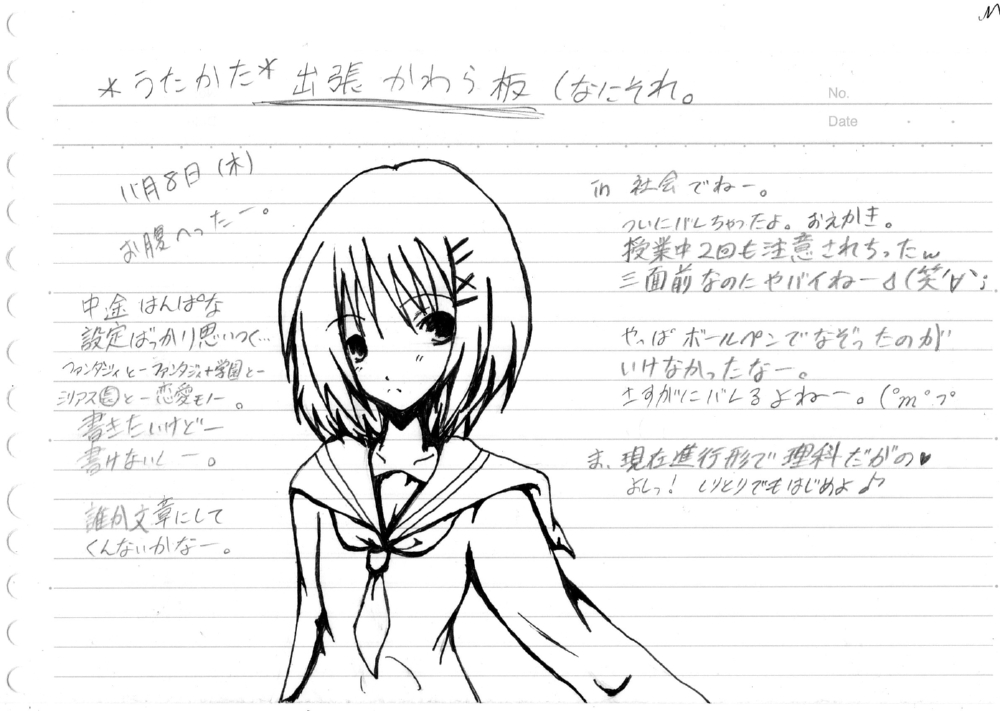 *うたかた* 出張 かわら板 (なにそれ。
No.
Date
11月8日(木)
お腹へったー。
中途はんぱな
設定ばっかり思いつく…
ファンタジィとーファンタジィ+学園とー
シリアス園とー恋愛モノー。
書きたいけどー
書けないしー。
誰か文章にして
くんないかなー。
in 社会でねー。
ついにバレちゃったよ。おえかき。
授業中2回も注意されちったw
三面前なのにヤバイねー
やっぱボールペンでなぞったのが
いけなかったなー。
さすがにバレるよねー。
ま、現在進行形で理科だがの♥
よしっ! しりとりでもはじめよ♪